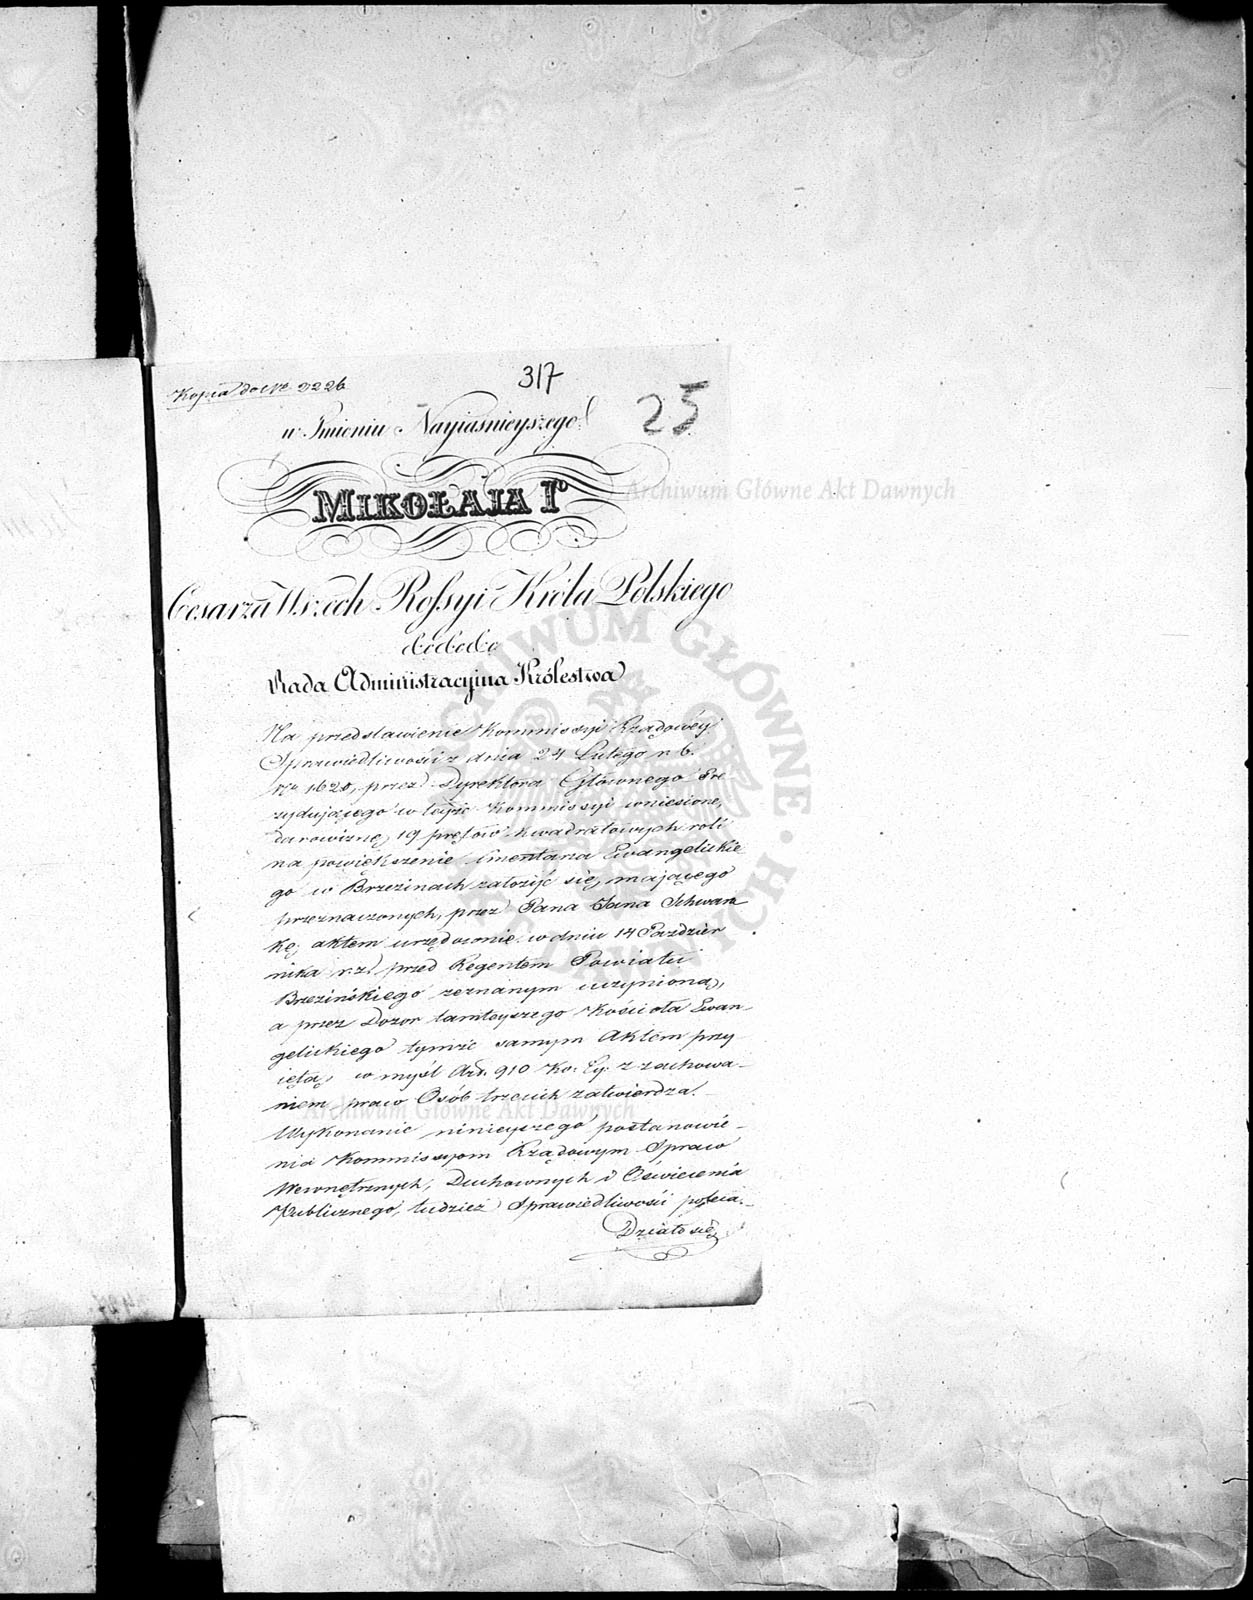 Kopia do № 2226
317
25
w Imieniu Nayiaśnieyszego
MIKOŁAJA Iº
Cesarza Wszech Rossyi Króla Polskiego
&c &c &c
Rada Administracyina Królestwa
Na przedstawienie Kommissyi Rządowéy
Sprawiedliwości z dnia 24 Lutego r. b.
Nr. 1620, przez Dyrektora Głównego Pre
zydującego w teyże Kommissyi wniesione,
darowiznę, 19 prętów kwadratowych roli
na powiększenie Cmentarza Ewangelickie
go w Brzezinach założyć się, mającego
przeznaczonych, przez Pana Jana Schwars
kę aktem urzędownie w dniu 14 Paździer
nika r. z. przed Regentem Powiatu
Brzezińskiego zeznanym uczynioną,
a przez Dozor tamteyszego Kościoła Ewan-
gelickiego tymże samym Aktem przy
iętą, w myśl Art. 910 Ko. Cy. z zachowa-
niem praw Osób trzecich zatwierdza.
Wykonanie ninieyszego postanowie-
nia Kommissyom Rządowym Spraw
Wewnętrznych, Duchownych i Oświecenia
Publicznego, tudzież Sprawiedliwości poleca.
Działo się
Archiwum Główne Akt Dawnych
ARCHIWUM GŁÓWNE AKT DAWNYCH
Archiwum Główne Akt Dawnych